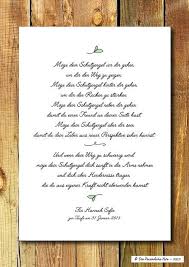 Möge dein Schutzengel vor dir gehen,
um dir den Weg zu zeigen.
Möge dein Schutzengel hinter dir gehen,
um dir den Rücken zu stärken.
Möge dein Schutzengel neben dir gehen,
damit du einen Freund an deiner Seite hast.
Möge dein Schutzengel über dir
damit du dein Leben aus neuer Perspektive sehen kannst.
Und wenn dein Weg zu schwierig wird
möge dich dein Schutzengel in die Arme nehmen
und dich
das du aus eigener Kraft nicht überwinden kannst.
Für Hannah Sofie
zur Taufe am 31. Januar 2013